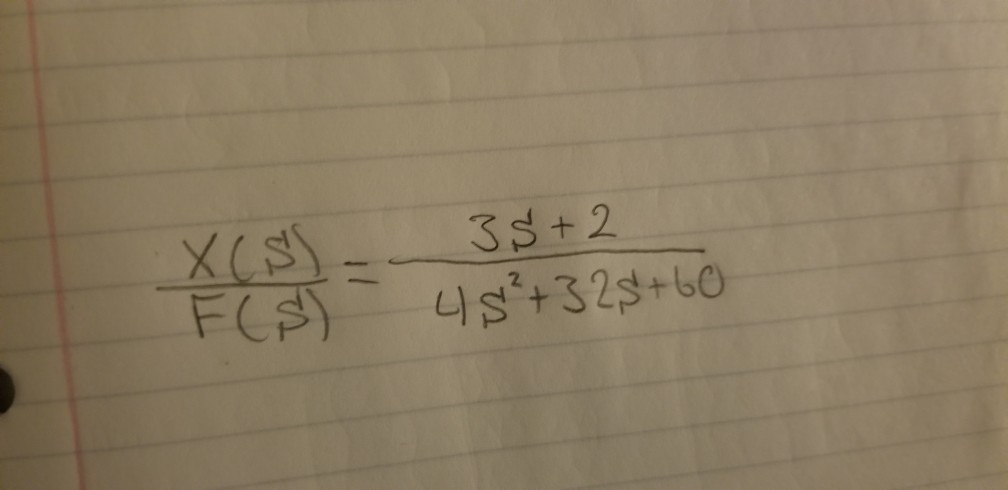 X(S)/F(S) = (3S+2)/(4S²+32S+60)